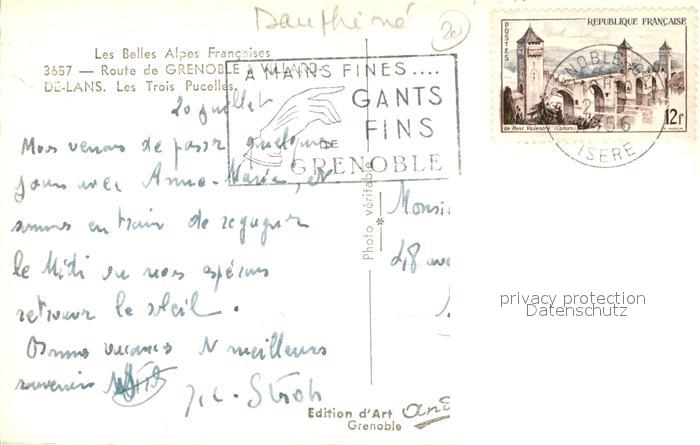 Dauphiné
20
Les Belles Alpes Françaises
3657 — Route de GRENOBLE à VILLARD-
DE-LANS. Les Trois Pucelles.
A MAINS FINES....
GANTS
FINS
DE
GRENOBLE
POSTES
REPUBLIQUE FRANÇAISE
Le Pont Valentré (Cahors)
12f
GRENOBLE
56
ISERE
20 juillet
Nous venons de passer quelques
jours avec Anne-Marie, et
sommes en train de regagner
le Midi où nous espérons
retrouver le soleil.
Bonnes vacances & meilleurs
souvenirs
Photo véritable
Monsi
48 ave
Edition d'Art
Grenoble
privacy protection
Datenschutz